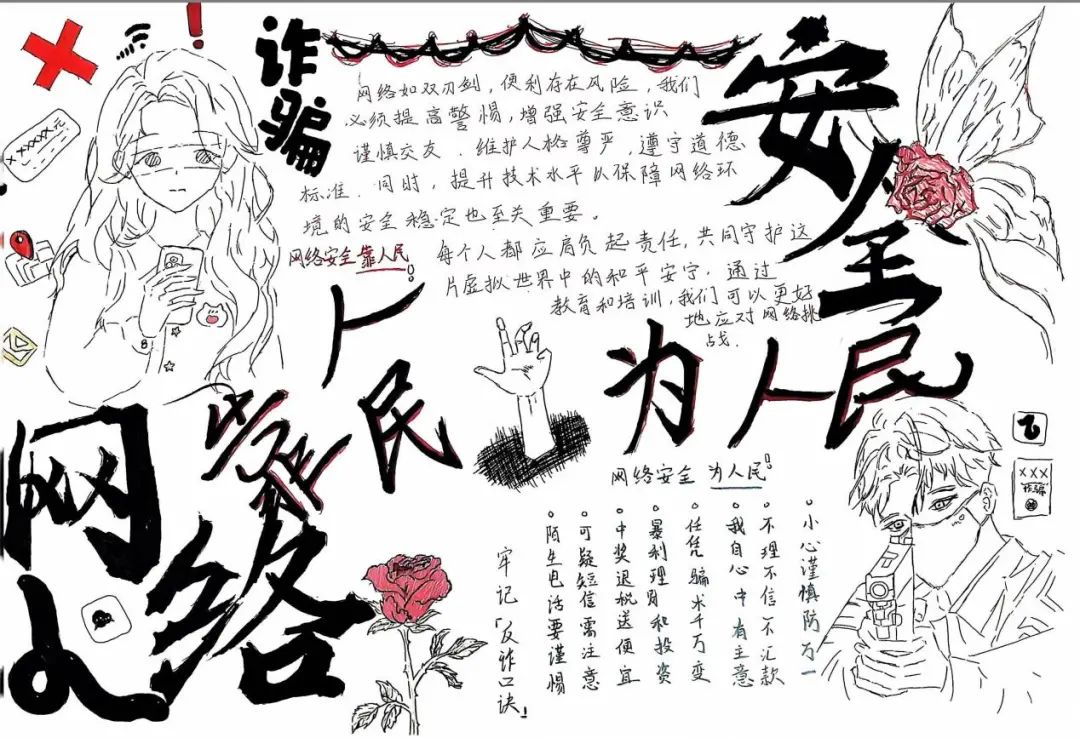 诈骗
网络如双刃剑，便利存在风险，我们
必须提高警惕，增强安全意识
谨慎交友．维护人格尊严，遵守道德
标准．同时，提升技术水平以保障网络环
境的安全稳定也至关重要。
每个人都应肩负起责任，共同守护这
片虚拟世界中的和平安宁，通过
教育和培训，我们可以更好
地应对网络挑
战．
网络安全靠人民！
网络
安全
靠
人民
为人民
×××××元
网络安全 为人民！
牢记「反诈口诀」
陌生电话要谨惕
可疑短信需注意
中奖退税送便宜
暴利理财和投资
任凭骗术千万变
我自心中有主意
不理不信不汇款
小心谨慎防万一
×××
诈骗